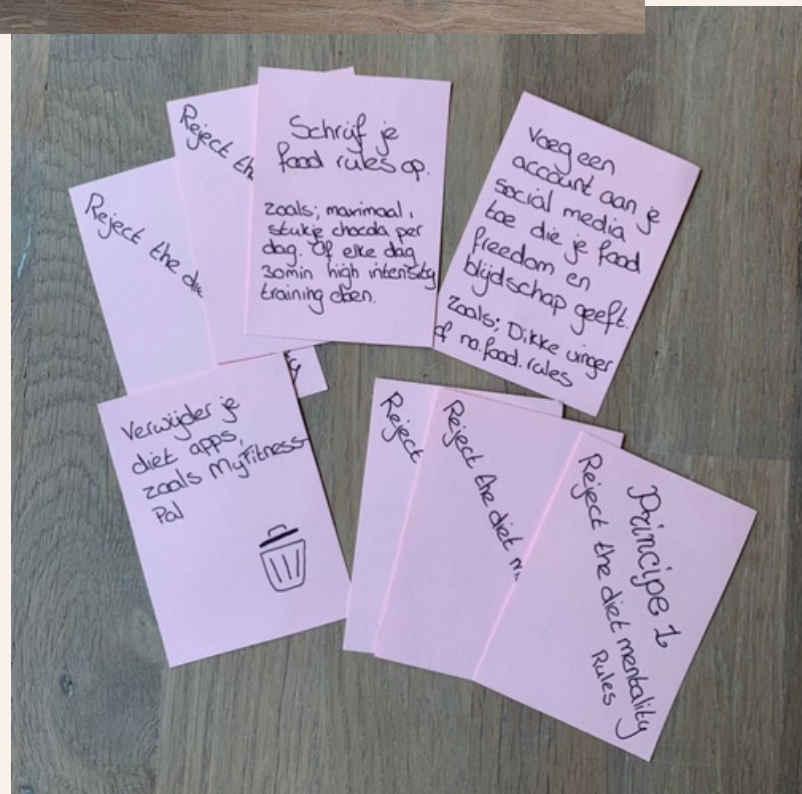 Reject the die
Reject th
Schrijf je
food rules op.
zoals; maximaal 1
stukje chocola per
dag. Of elke dag
30min high intensity
training doen.
Voeg een
account aan je
social media
toe die je food
freedom en
blijdschap geeft.
Zoals; Dikke vinger
of no.food.rules
Verwijder je
diet apps,
zoals MyFitness-
Pal
Reject
Reject the diet m
Principe 1
Reject the diet mentality
Rules